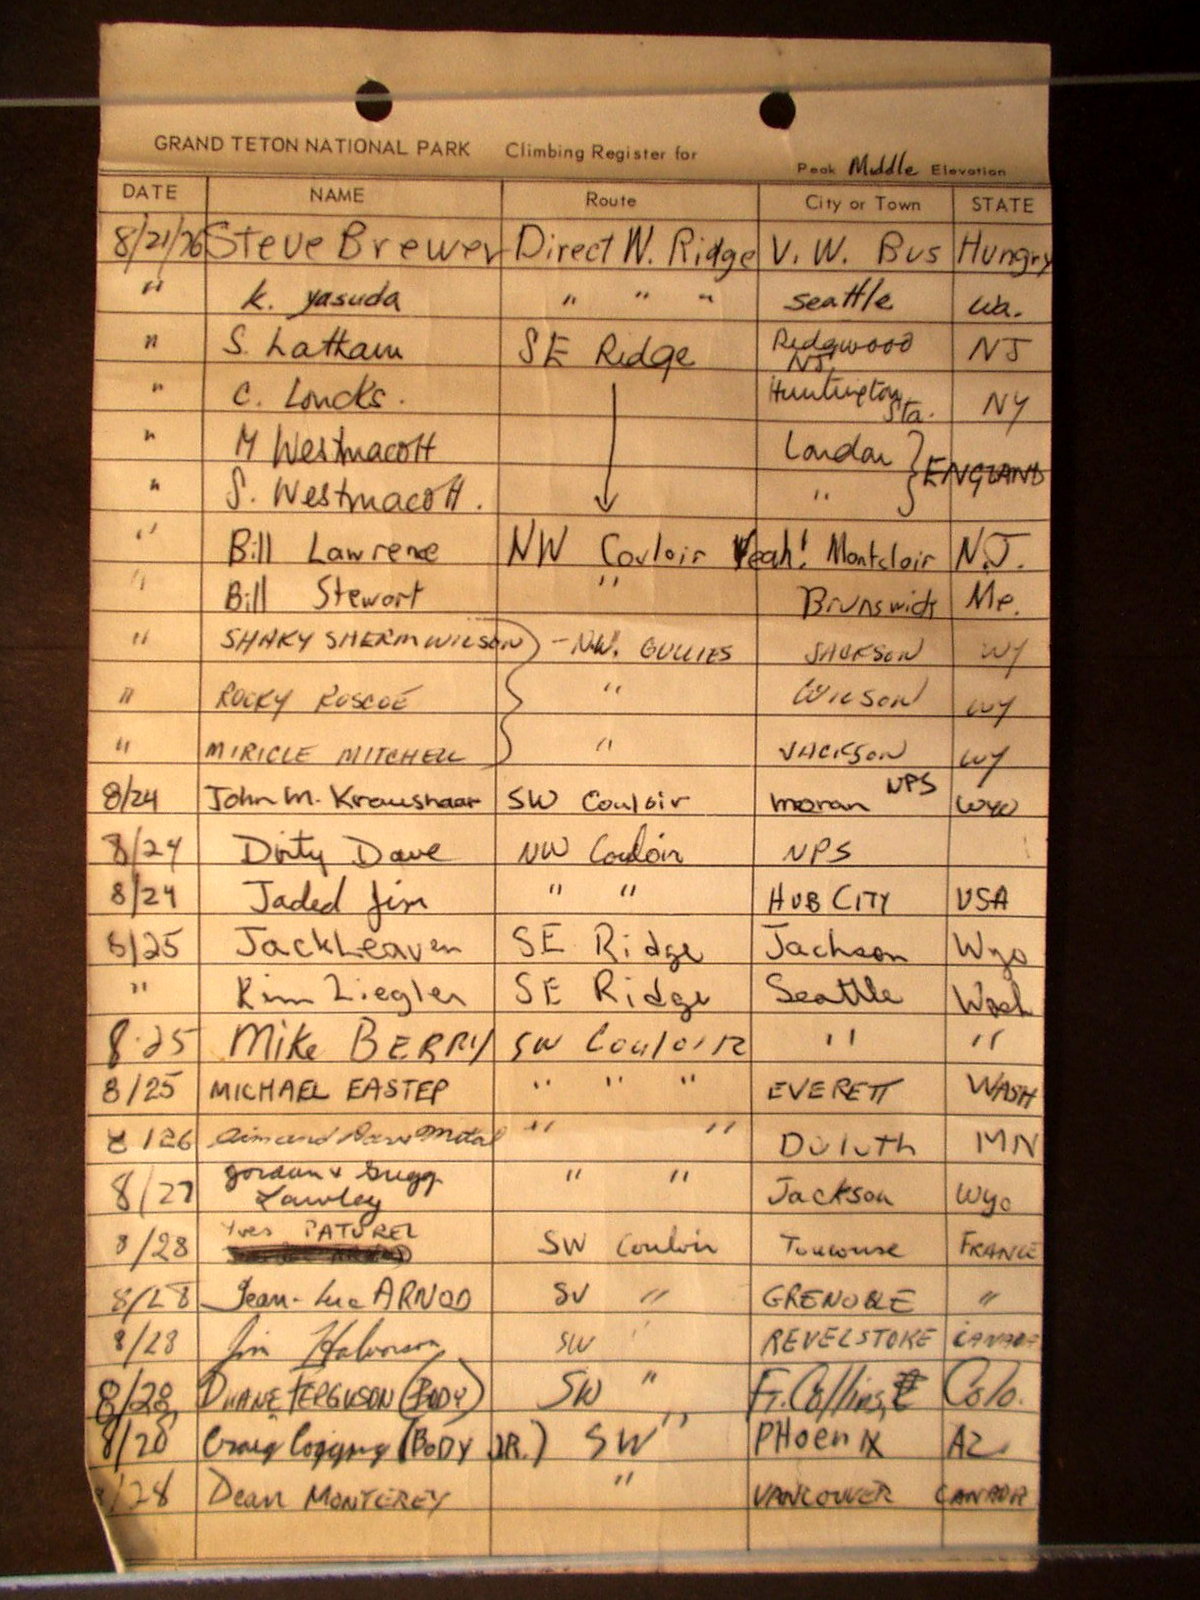 GRAND TETON NATIONAL PARK Climbing Register for Peak Middle Elevation
DATE NAME Route City or Town STATE
8/21/76 Steve Brewer Direct W. Ridge V. W. Bus Hungry
" K. Yasuda " " " Seattle Wa.
" S. Latham SE Ridge Ridgwood NJ, NJ
" C. Loucks. Huntington Sta. NY
" M Westmacott London } ENGLAND
" S. Westmacott. "
" Bill Lawrence NW Couloir Yeah! Montclair N.J.
" Bill Stewart " Brunswick Me.
" SHAKY SHERM WILSON } - N.W. GULLIES JACKSON WY
" ROCKY ROSCOE " WILSON WY
" MIRICLE MITCHELL " JACKSON WY
8/24 John M. Kraushaar SW Couloir Moran NPS Wyo
8/24 Dirty Dave NW Couloir NPS
8/24 Jaded Jim " " HUB CITY USA
8/25 Jack Leaven SE Ridge Jackson Wyo
" Kim Ziegler SE Ridge Seattle Wash
8-25 Mike BERRY SW Couloir " "
8/25 MICHAEL EASTEP " " " EVERETT WASH
8/26 " " Duluth MN
8/27 Gordon + Gregg Lawley " " Jackson Wyo
8/28 Yves PATUREL SW Couloir Toulouse FRANCE
8/28 Jean-Luc ARNOD SW " GRENOBLE "
8/28 Jim Halvorson SW " REVELSTOKE CANADA
8/28, DUANE FERGUSON (BODY) SW " Ft. Collins, Colo.
8/28 Craig (BODY JR.) SW " PHoenix AZ
8/28 Dean MONTEREY " VANCOUVER CANADA